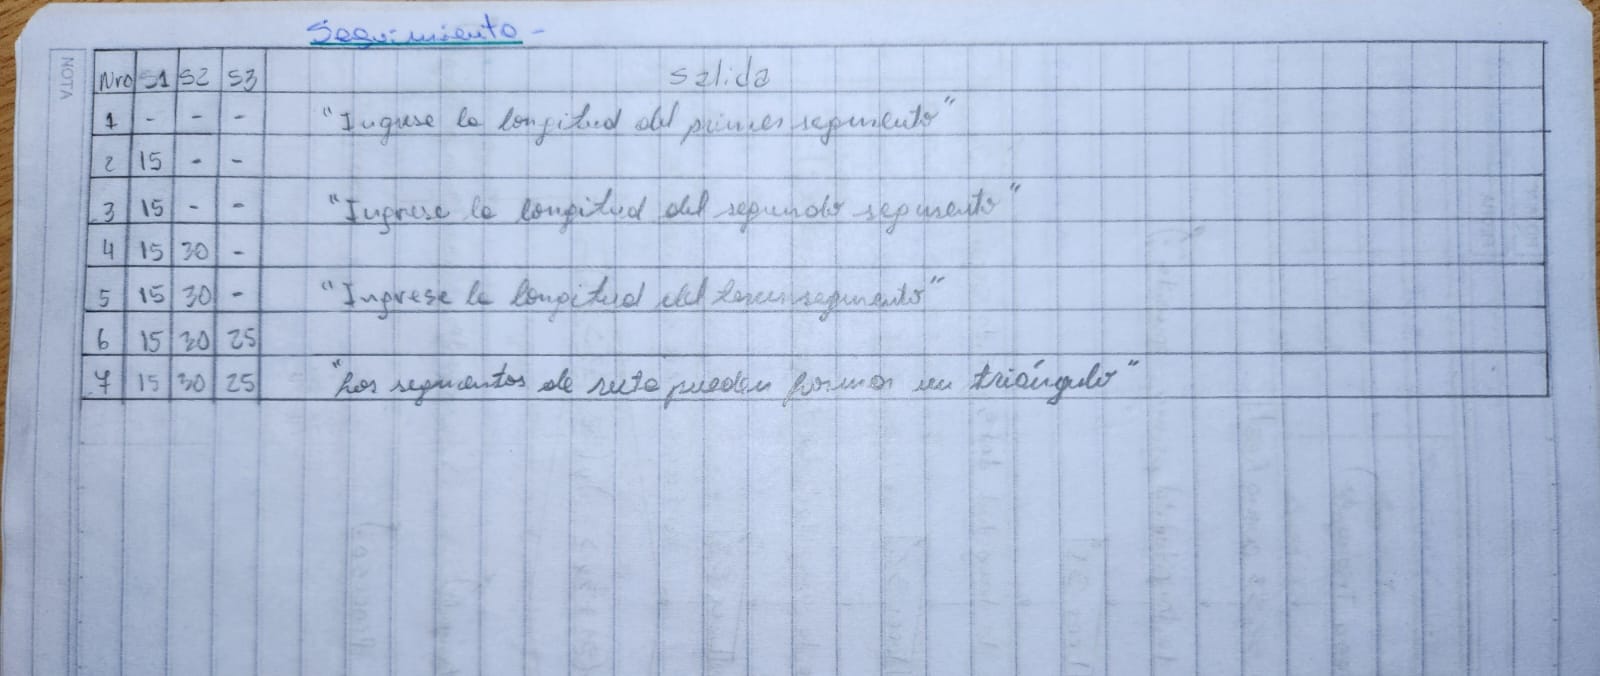 Seguimiento -
NOTA
Nro S1 S2 S3 Salida
1 - - - "Ingrese la longitud del primer segmento"
2 15 - -
3 15 - - "Ingrese la longitud del segundo segmento"
4 15 30 -
5 15 30 - "Ingrese la longitud del tercer segmento"
6 15 30 25
7 15 30 25 "Los segmentos de recta pueden formar un triángulo"